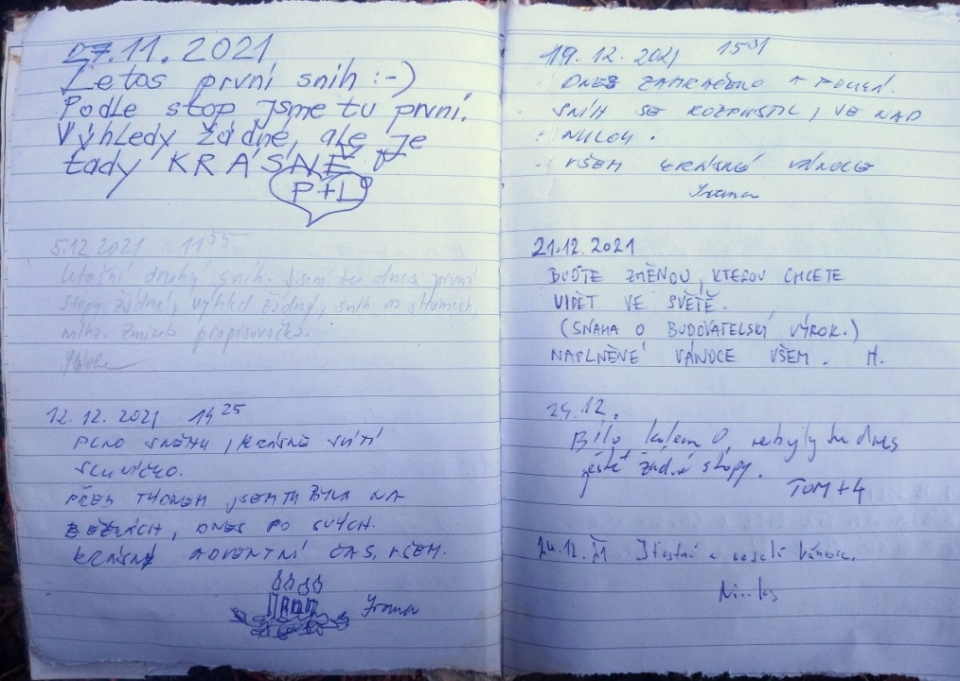 27.11.2021
Letos první sníh :-)
Podle stop jsme tu první.
Výhledy žádné, ale je
tady KRÁSNĚ
P+L
5.12.2021 11 55
letošní druhý sníh. Jsem tu dnes první
stopy žádné, výhled žádný, sníh na stromech,
mlha. propisovačka.
12.12.2021 14 25
PLNO SNĚHU, KRÁSNĚ SVÍTÍ
SLUNÍČKO.
PŘED TÝDNEM JSEM TU BYLA NA
BĚŽKÁCH, DNES PO SVÝCH.
KRÁSNÝ ADVENTNÍ ČAS, VŠEM.
Ivana
19.12.2021 15 31
DNES ZATAŽENO A
SNÍH SE ROZPUSTIL, JE NAD
NULOU.
VŠEM KRÁSNÉ VÁNOCE
Ivana
21.12.2021
BUĎTE ZMĚNOU, KTEROU CHCETE
VIDĚT VE SVĚTĚ.
(SNAHA O BUDOVATELSKÝ VÝROK.)
NAPLNĚNÉ VÁNOCE VŠEM. H.
24.12.
Bílo kolem 0, nebyly tu dnes
ještě žádné stopy.
TOM+4
24.12.21 Šťastné a veselé Vánoce.